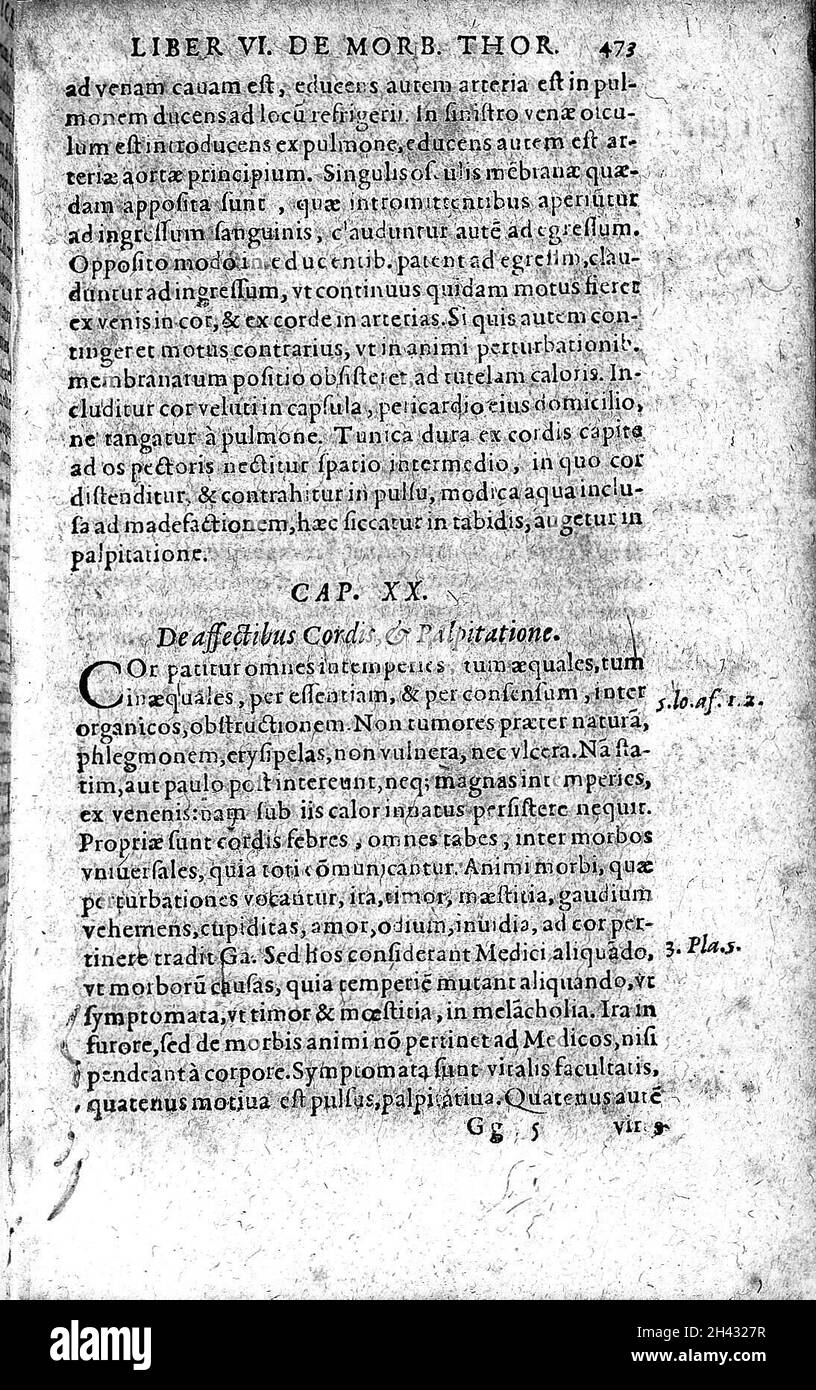 LIBER VI. DE MORB. THOR. 473
ad venam cauam eſt, educens autem arteria eſt in pul-
monem ducens ad locũ refrigerii. In ſiniſtro venæ oſcu-
lum eſt introducens ex pulmone, educens autem eſt ar-
teriæ aortæ principium. Singulis oſculis mẽbranæ quæ-
dam appoſita ſunt, quæ intromittentibus aperiũtur
ad ingreſſum ſanguinis, clauduntur autẽ ad egreſſum.
Oppoſito modo in educentib. patent ad egreſſm, clau-
duntur ad ingreſſum, vt continuus quidam motus fieret
ex venis in cor, & ex corde in arterias. Si quis autem con-
tingeret motus contrarius, vt in animi perturbationib.
membranarum poſitio obſiſteret ad tutelam caloris. In-
cluditur cor veluti in capſula, pericardio eius domicilio,
ne tangatur à pulmone. Tunica dura ex cordis capite
ad os pectoris nectitur ſpatio intermedio, in quo cor
diſtenditur, & contrahitur in pulſu, modica aqua inclu-
ſa ad madefactionem, hæc ſiccatur in tabidis, augetur in
palpitatione.
CAP. XX.
De affectibus Cordis, & Palpitatione.
COr patitur omnes intemperies, tum æquales, tum
inæquales, per eſſentiam, & per conſenſum, inter
5. lo. af. 1. 2.
organicos, obſtructionem. Non tumores præter naturã,
phlegmonem, eryſipelas, non vulnera, nec vlcera. Nã ſta-
tim, aut paulo poſt intereunt, neq; magnas intemperies,
ex venenis: nam ſub iis calor innatus perſiſtere nequit.
Propriæ ſunt cordis febres, omnes tabes, inter morbos
vniuerſales, quia toti cõmunicantur. Animi morbi, quæ
perturbationes vocantur, ira, timor, mæſtitia, gaudium
vehemens, cupiditas, amor, odium, inuidia, ad cor per-
tinere tradit Ga. Sed hos conſiderant Medici aliquãdo,
3. Pla. 5.
vt morborũ cauſas, quia temperiẽ mutant aliquando, vt
ſymptomata, vt timor & mœſtitia, in melãcholia. Ira in
furore, ſed de morbis animi nõ pertinet ad Medicos, niſi
pendeant à corpore. Symptomata ſunt vitalis facultatis,
quatenus motiua eſt pulſus, palpitatiua. Quatenus autẽ
Gg 5
alamy
Image ID: 2H4327R
www.alamy.com